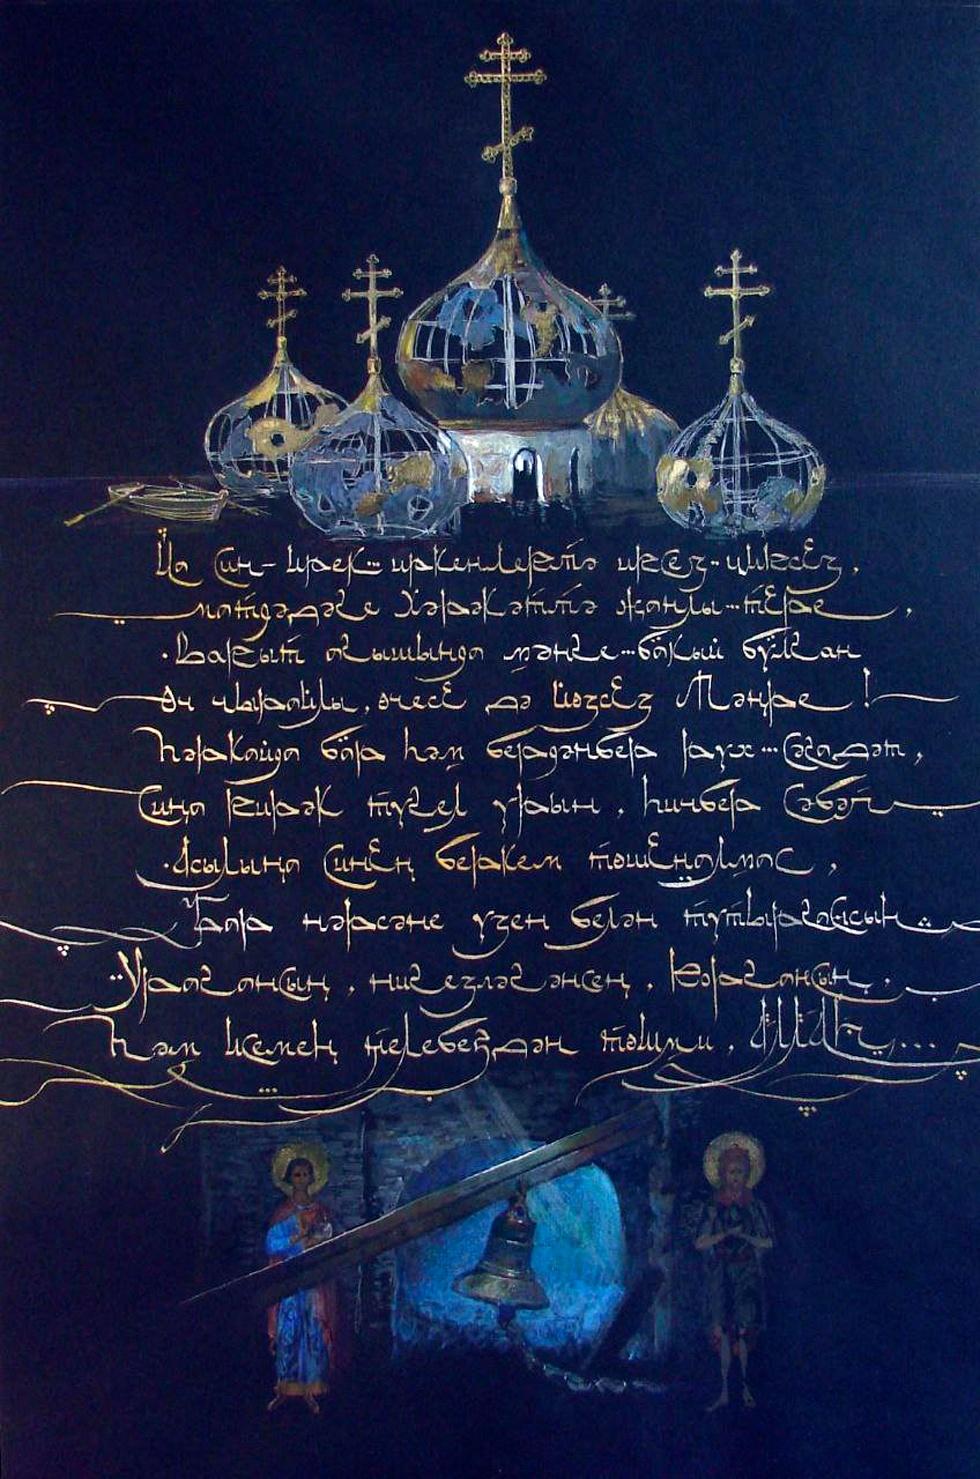 Йа Син – ирек... иркенлектә иксез-чиксез,
матдәдәге хәрәкәттә җанлы-тере,
Вакыт агышында мәңге-бакый булган
Өч чырайлы, өчесе дә йөзсез Тәңре!
Һәркайда бар һәм бердәнбер рух-сәгадәт,
Сиңа кирәк түгел урын, һичбер сәбәп
Асылыңа синең беркем төшенәлмас,
Бар нәрсәне үзең белән тутыргансың
Урагансың, нигезләгәнсең,
Һәм исемең телебездән төшми, АЛЛАҺ...